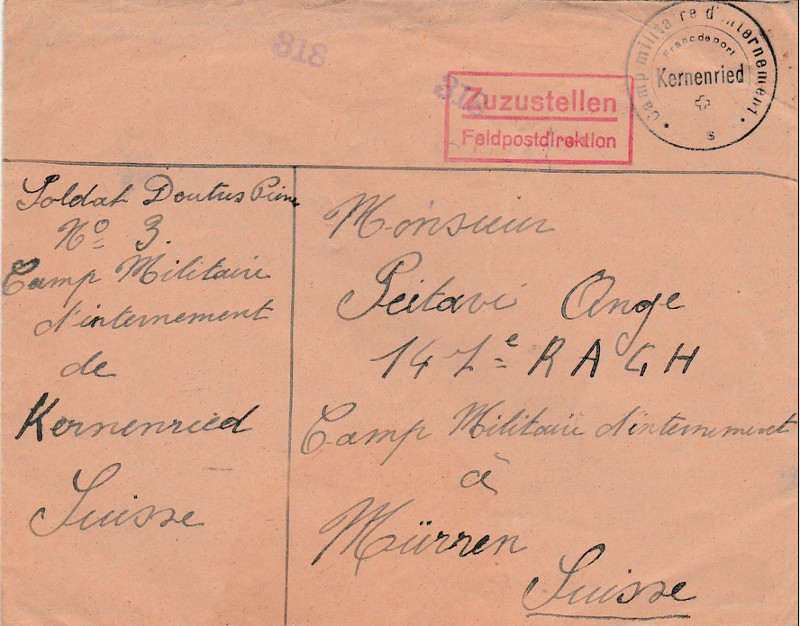 318
318
Zuzustellen
Feldpostdirektion
Camp militaire d'internement
Franc de port
Kernenried
S
Soldat Doutres
Nº 3
Camp Militaire
d'internement
de
Kernenried
Suisse
Monsieur
Peitavi Ange
147e R A G H
Camp Militaire d'internement
à
Mürren
Suisse